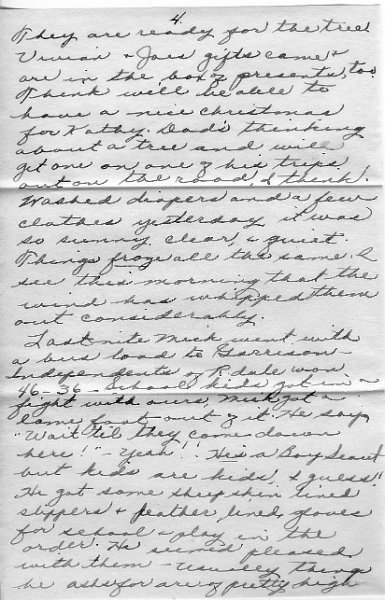 4.
They are ready for the tree.
Vivian & Joes gifts came &
are in the box of presents, too.
Think will be able to
have a nice Christmas
for Kathy. Dad's thinking
about a tree and will
get one on one of his trips
out on the road, I think.
Washed diapers and a few
clothes yesterday it was
so sunny, clear, & quiet.
Things froze all the same. I
see this morning that the
wind has whipped them
out considerably.
Last nite Mick went with
a bus load to Garrison -
Independents of Rdale won
46-36 - School kids got in a
fight with ours, Mick got a
lame foot out of it. He says
"Wait til they come down
here!" - Yeah! He's a Boy Scout
but kids are kids, I guess!
He got some sheepskin lined
slippers & leather lined gloves
for school & play in the
order. He seemed pleased
with them - Usually things
he asks for are of pretty high